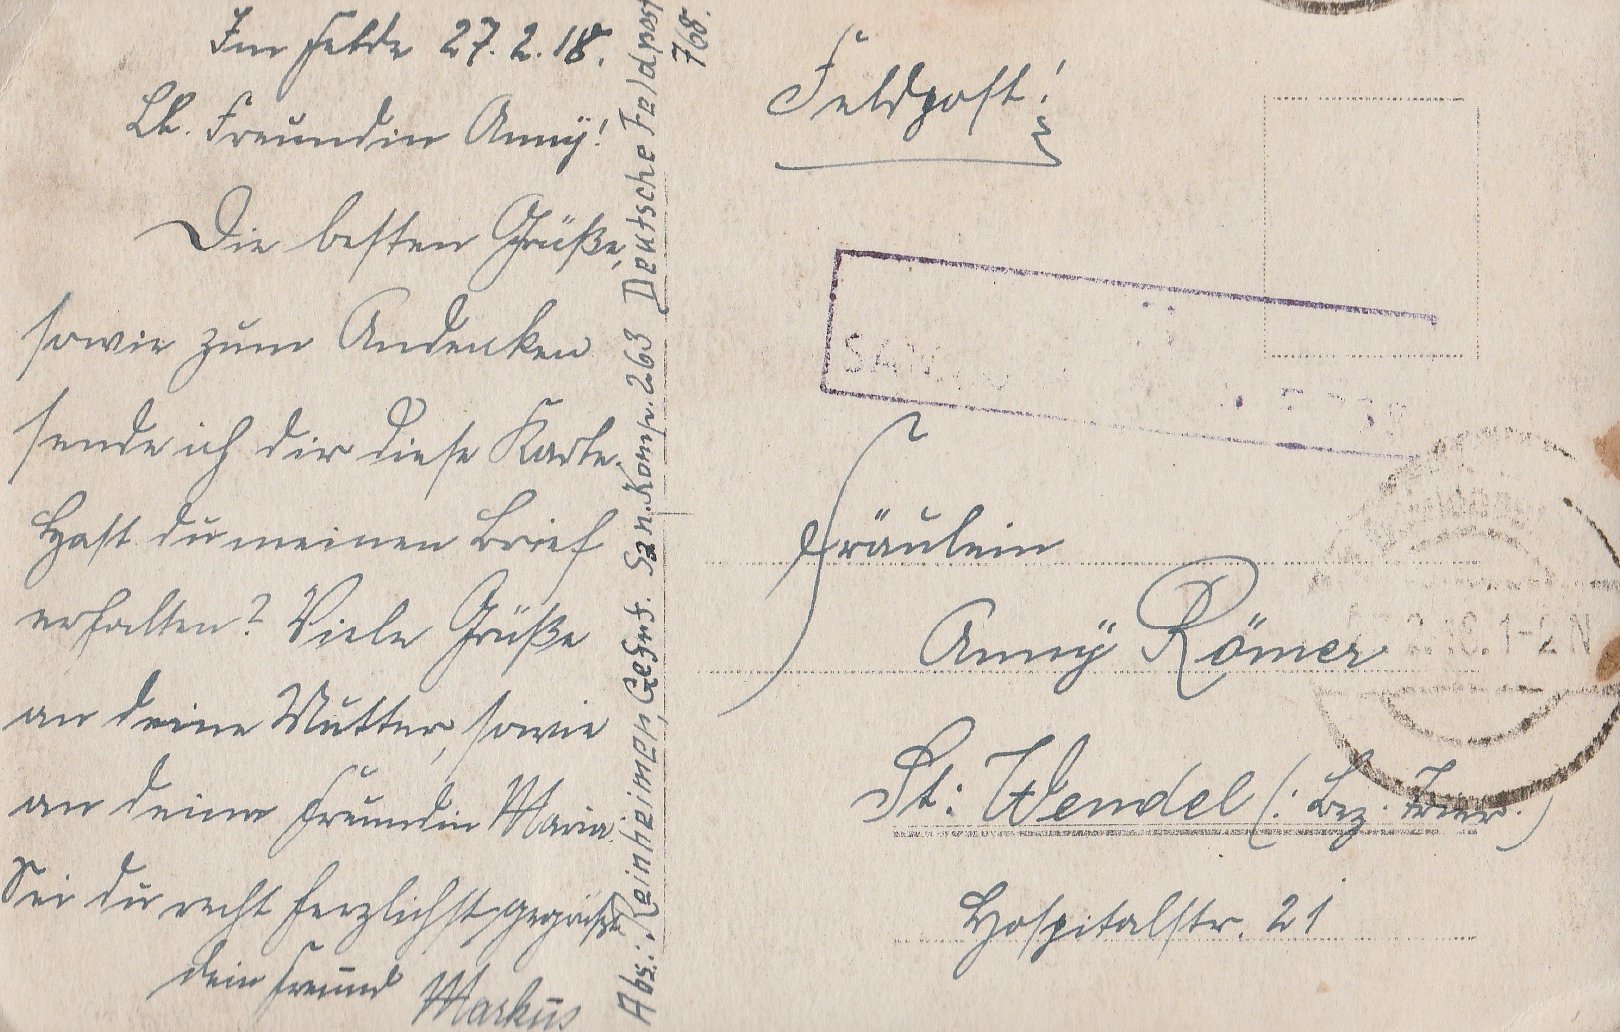 Im Felde 27.2.18.
Lb. Freundin Anny!
Die besten Grüße,
sowie zum Andenken
sende ich dir diese Karte.
Hast du meinen Brief
erhalten? Viele Grüße
an deine Mutter, sowie
an deine Freundin Maria.
Sei du recht herzlichst gegrüßt
dein Freund Markus
Abs.: Reinheimer, Gefrt. San. Komp. 263 Deutsche Feldpost
768.
Feldpost!
Fräulein
Anny Römer
St: Wendel (: Bez. Trier.)
Hospitalstr. 21
1-2N